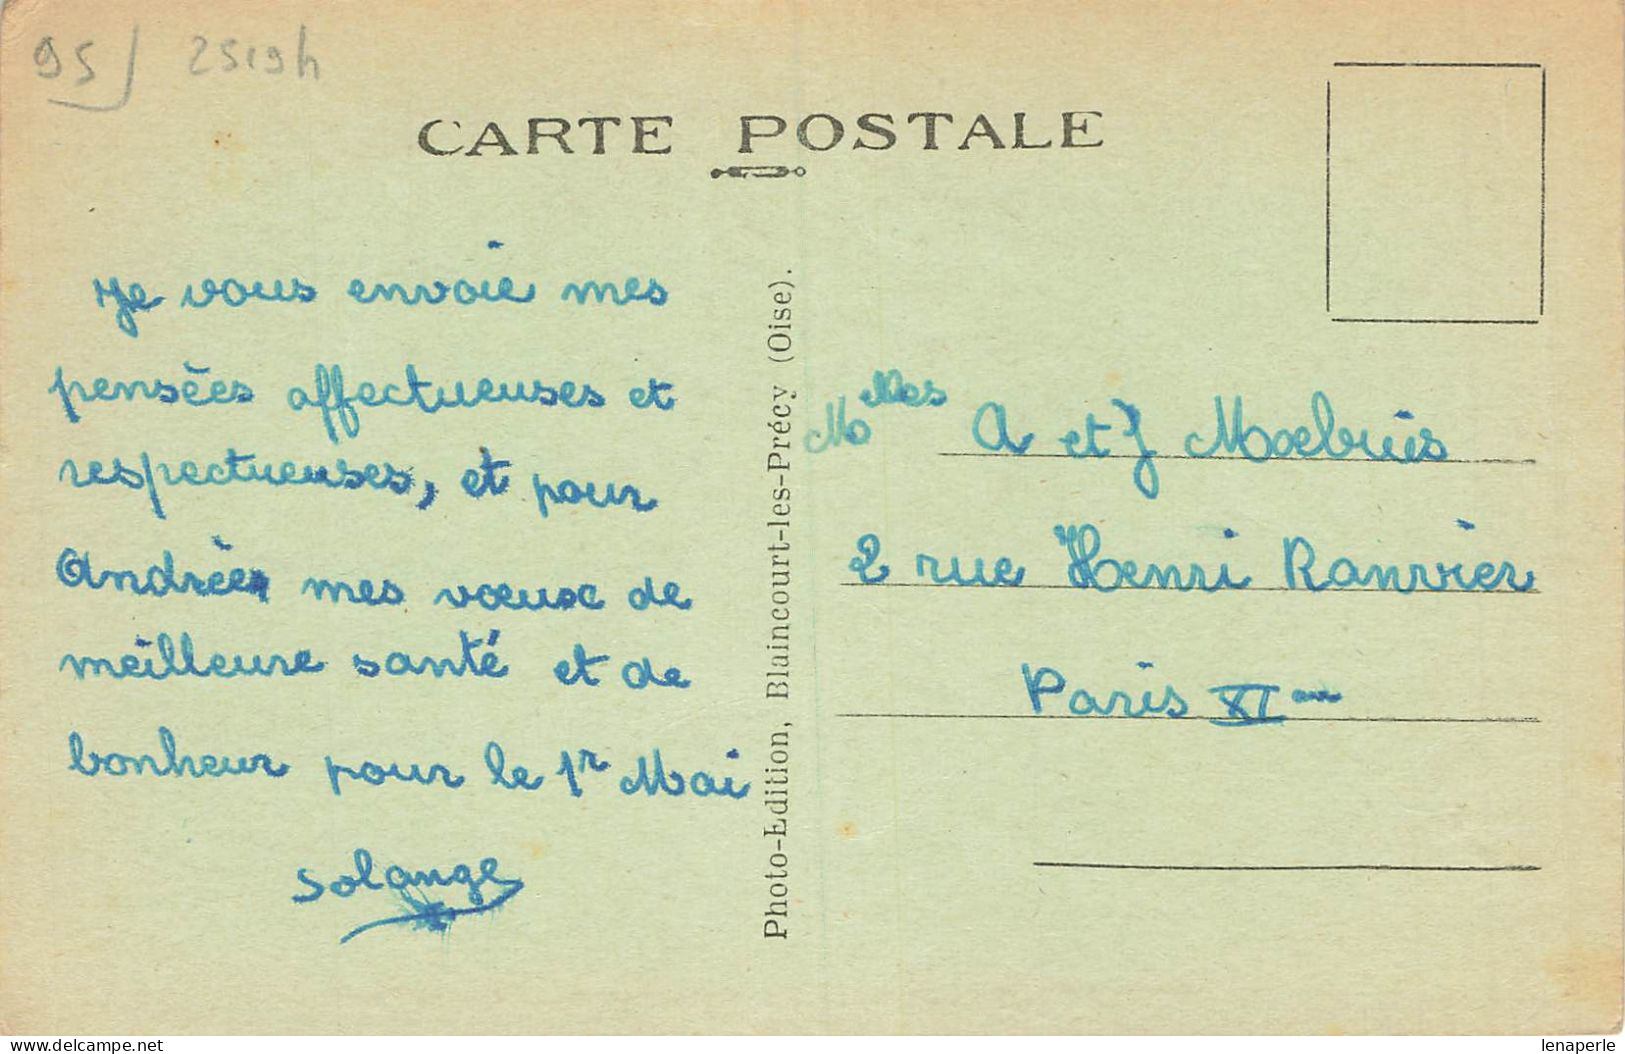 95 2519h
CARTE POSTALE
Je vous envoie mes
pensées affectueuses et
respectueuses, et pour
Andrée mes vœux de
meilleure santé et de
bonheur pour le 1r Mai
Solange
Photo-Edition, Blaincourt-les-Précy (Oise).
Melles A et J Moebuis
2 rue Henri Ranvier
Paris XIem
lenaperle
delcampe.net